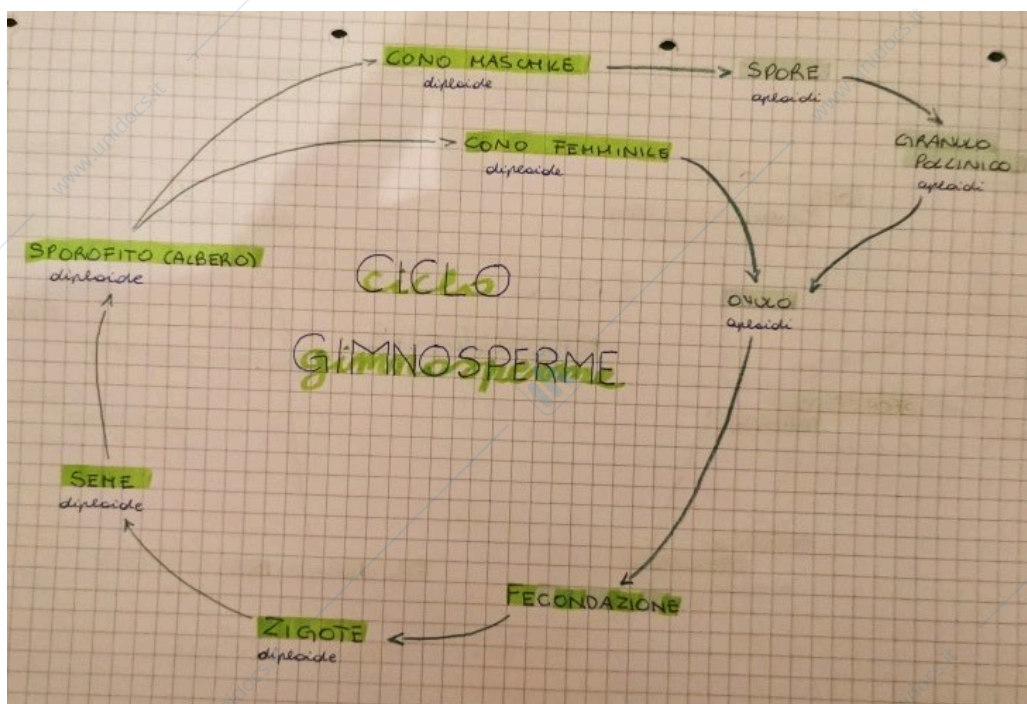 CONO MASCHILE
diploide
SPORE
aploidi
GRANULO
POLLINICO
aploidi
CONO FEMMINILE
diploide
SPOROFITO (ALBERO)
diploide
CICLO
GIMNOSPERME
OVULO
aploidi
SEME
diploide
FECONDAZIONE
ZIGOTE
diploide
www.unidocs.it
www.unidocs.it